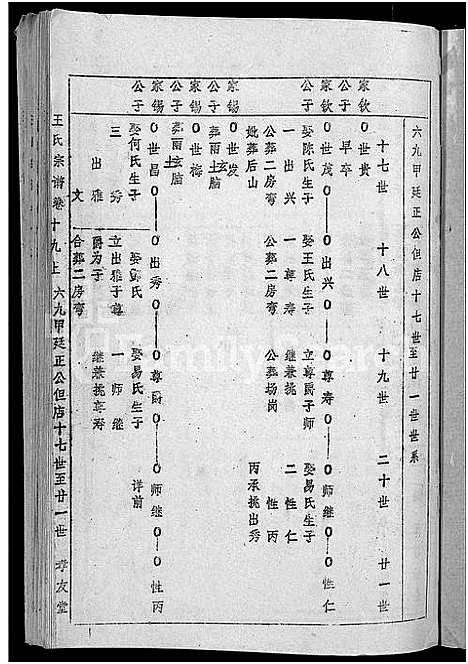 六九甲廷正公但店十七世至廿一世世系
十七世 十八世 十九世 二十世 廿一世
家钦公子
世贵
早卒
家钦公子
世茂 出兴 尊寿 师继 性仁
娶陈氏生子 娶王氏生子 立尊爵子师 娶易氏生子
一出兴 一尊寿 继兼挑 二性仁
公葬二房弯 公葬二房弯 公葬场岗 性丙
妣葬后山 丙承挑出秀
家锡公子
世发
葬雨玄土脑
家锡公子
世梅
葬雨玄土脑
家锡公子
世昌 出秀 尊爵 师继 性丙
娶何氏生子 娶氏 娶易氏生子 详前
三秀 立出雅子尊 一师继
出雅 爵为子 继兼挑尊寿
文 合葬二房弯
王氏宗谱卷十九上 六九甲廷正公但店十七世至廿一世 孝友堂